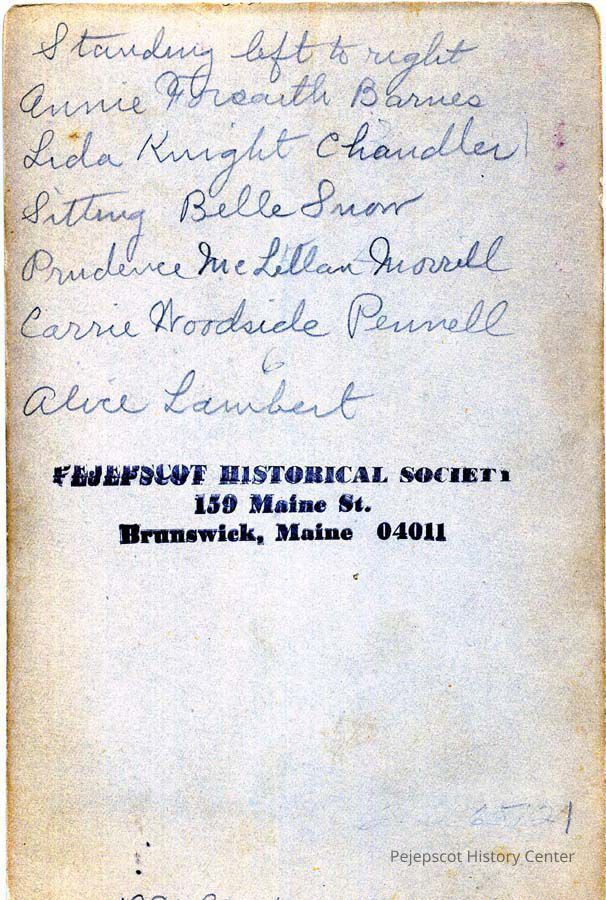 Standing left to right
Annie Forsaith Barnes
Lida Knight Chandler
Sitting Belle Snow
Prudence McLellan Morrell
Carrie Woodside Pennell
6
Alice Lambert
PEJEPSCOT HISTORICAL SOCIETY
159 Maine St.
Brunswick, Maine 04011
Pejepscot History Center